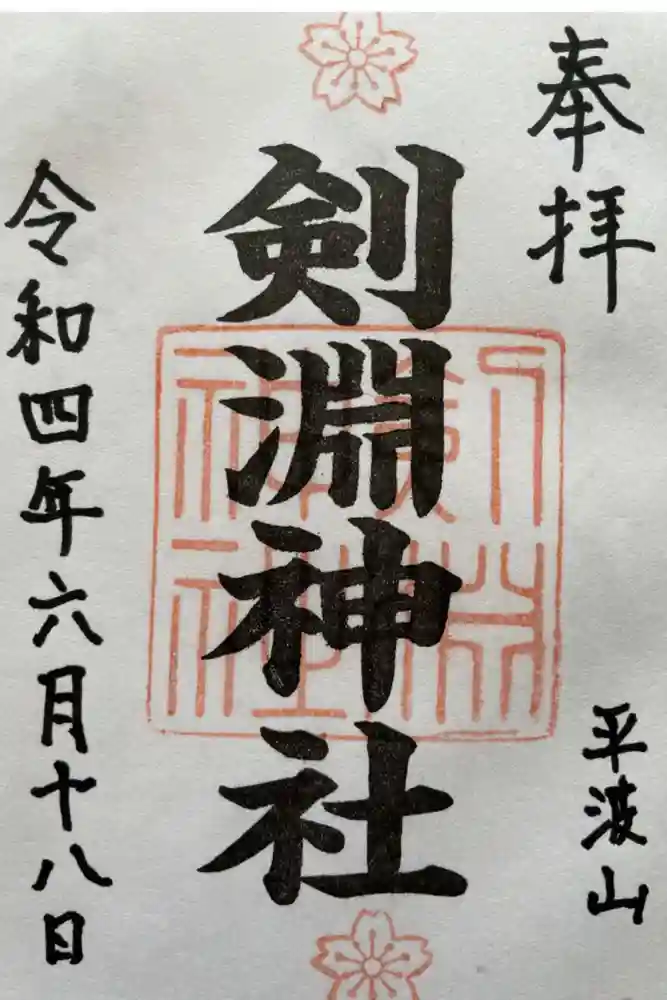 奉拝
平波山
剣淵神社
剣淵神社
令和四年六月十八日